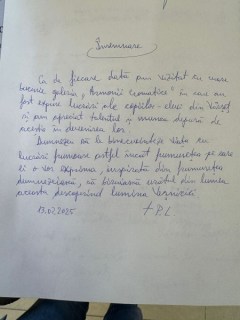 Însemnare
Ca de fiecare dată am vizitat cu mare
bucurie galeria "Armonii cromatice" în care au
fost expuse lucrări ale copiilor-elevi din
și am apreciat talentul și munca depusă de
aceștia în desenarea lor.
Dumnezeu să le binecuvinteze viața cu
lucrări frumoase astfel încât frumusețea pe care
ei o vor exprima, inspirată din frumusețea
dumnezeiască, să biruiască urâtul din lumea
aceasta descoperind lumina Veșniciei
2025